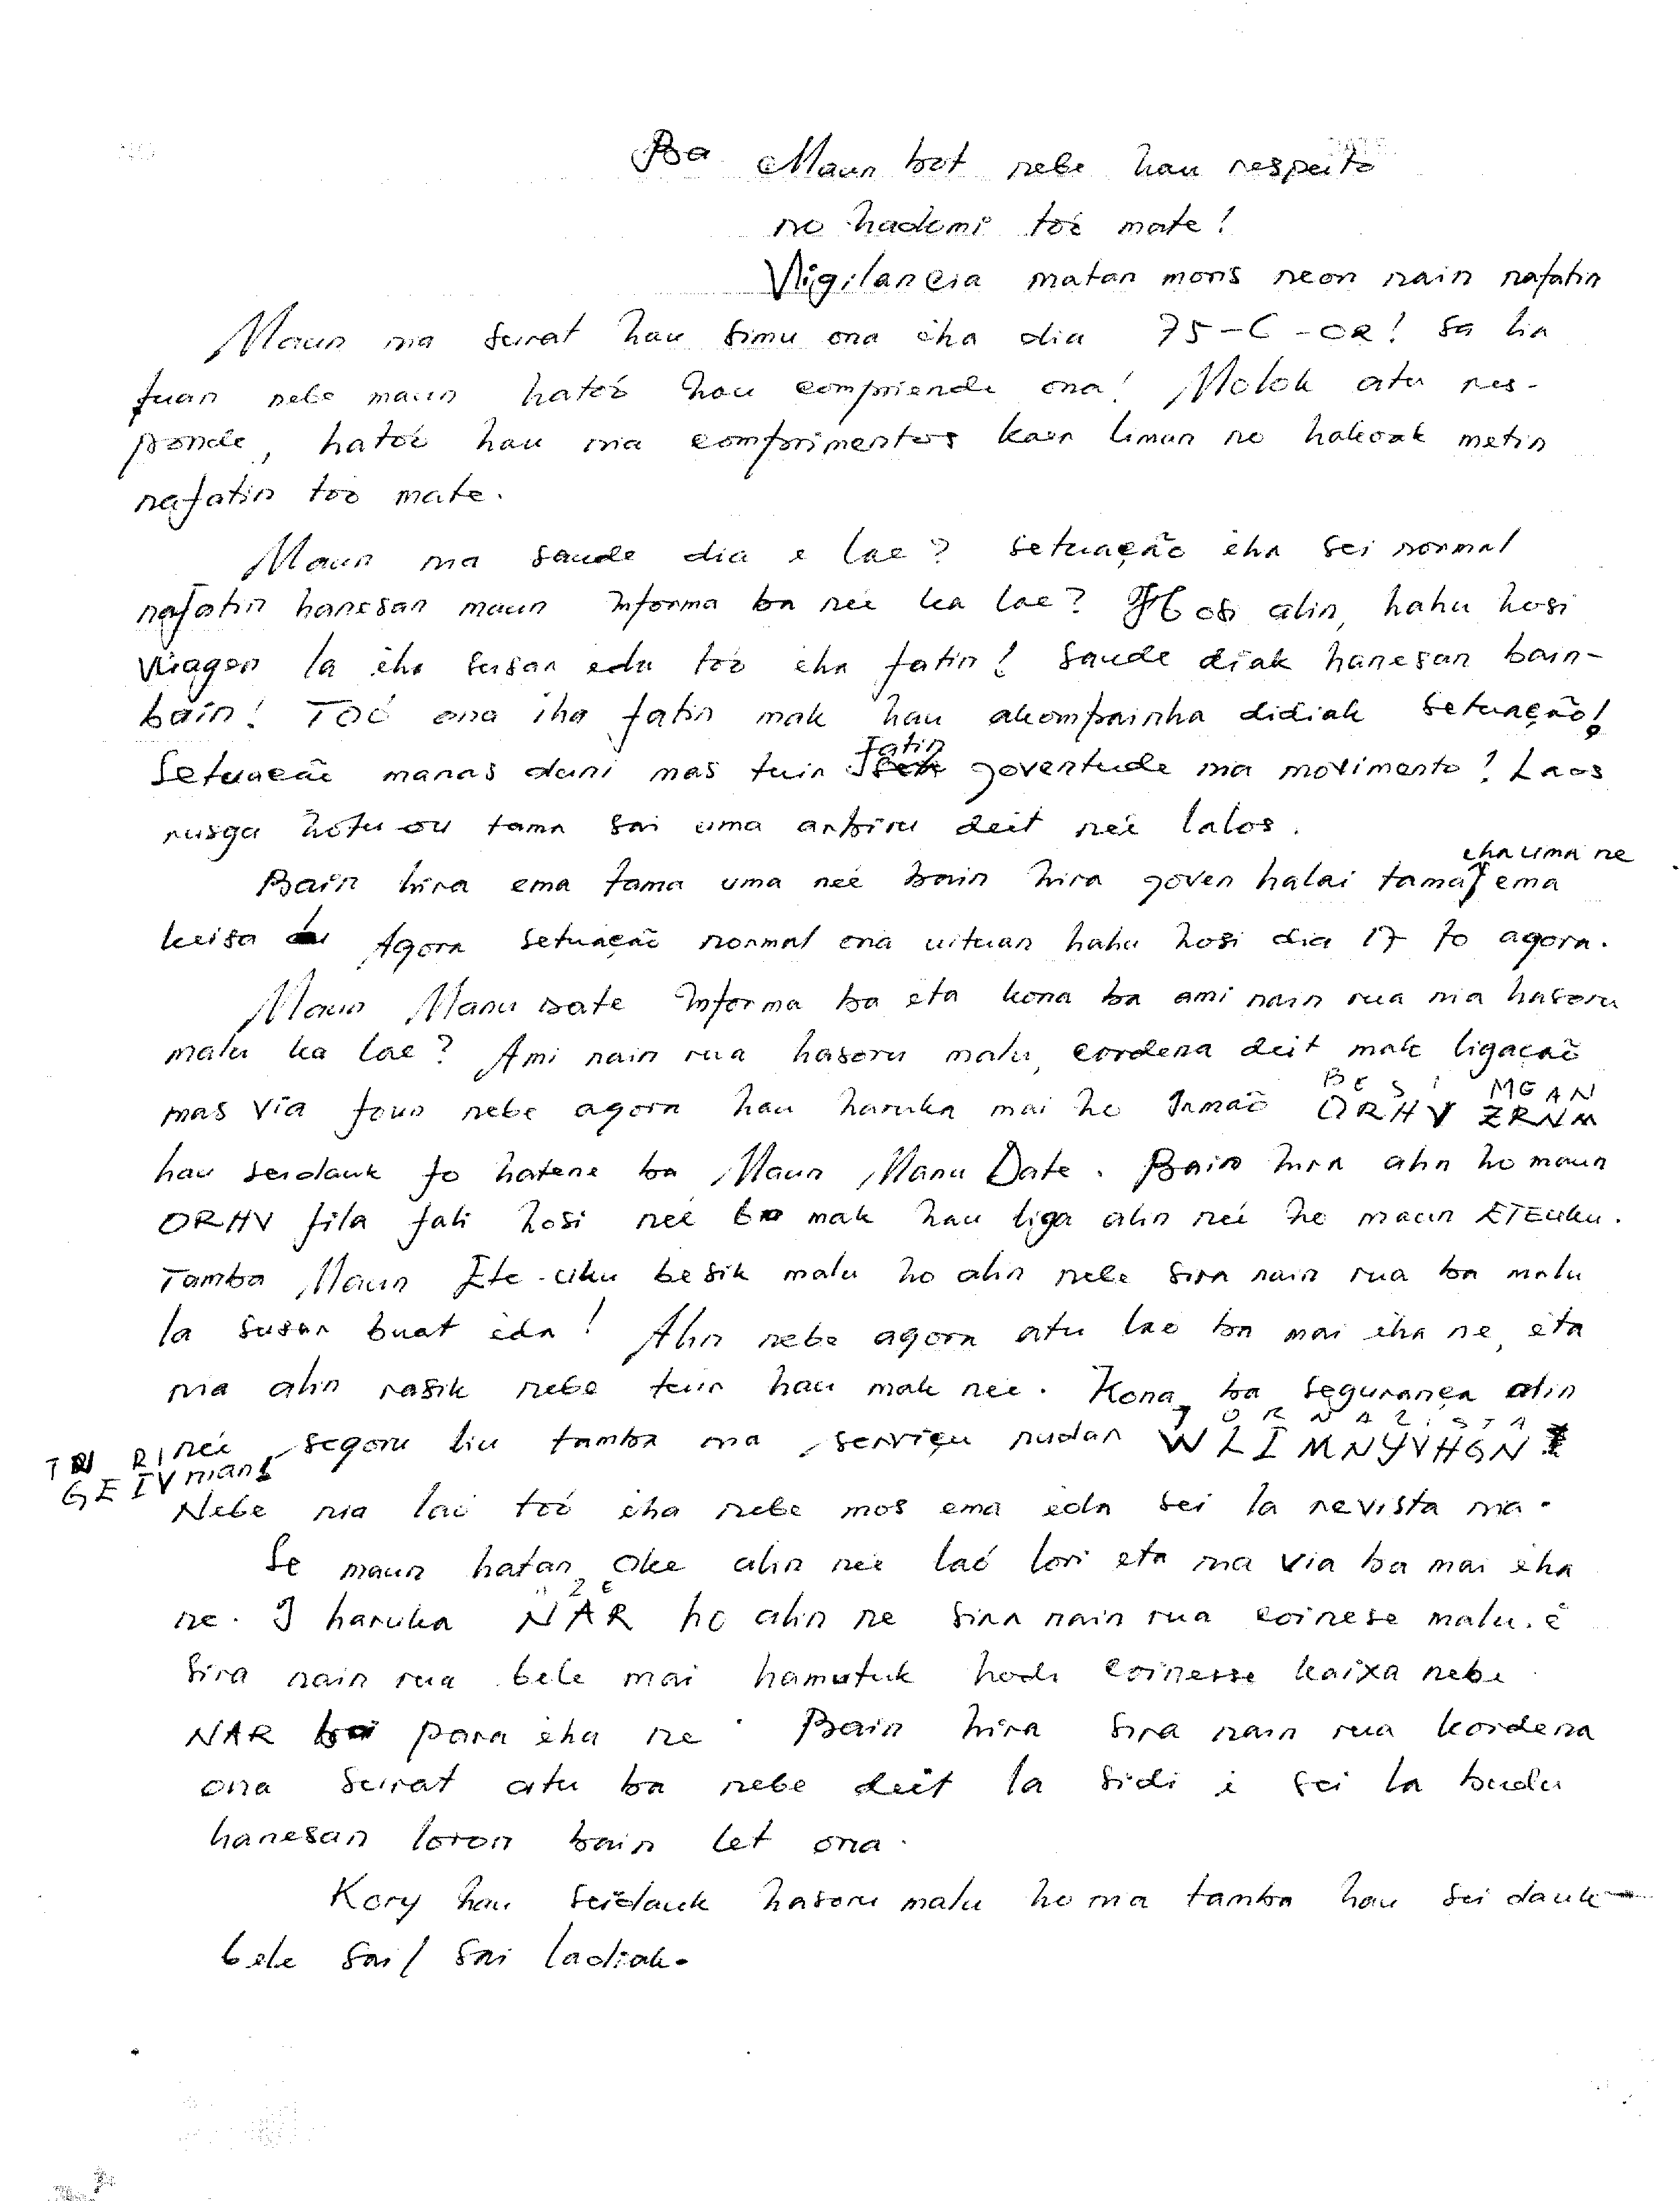 Ba Maun bot nebe hau respeito
no hadomi toò mate!
Vigilancia matan moris neon nain nafatin
Maun nia surat hau simu ona iha dia 75-C-OR! Sa lia
fuan nebe maun hatoò hau compriende ona! Molok atu res-
ponde, hatoò hau nia comprimentos kaer liman no hakoak metin
nafatin toò mate.
Maun nia saude dia e lae? Setuação iha sei normal
nafatin hanesan maun informa ba neè ka lae? Hos alin, hahu hosi
viagen la iha susar eda toò iha fatin! Saude diak hanesan bain-
bain! Toó ona iha fatin mak hau akompainha didiak setuação!
Setuacão manas duni mas tuir fatin joventude nia movimento! Laos
rusga hotu ou tama sai uma arbiru deit neè lalos.
Bain hira ema tama uma neè bain hira joven halai tama iha uma ne ema
keisa Agora setuação normal ona uituan hahu hosi dia 17 to agora.
Maun Manu Date informa ba eta kona ba ami nain rua nia hasoru
malu ka lae? Ami nain rua hasoru malu, cordena deit mak ligacão
BESI MEAN
mas via foun nebe agora hau haruka mai ho Irmaõ ORHV ZRNM
hau seidauk fo hatene ba Maun Manu Date. Bain hira alin ho maun
ORHV fila fali hosi neè mak hau liga alin neè ho maun ETEuku.
Tamba Maun Ete-uku besik malu ho alin nebe sira nain rua ba malu
la susar buat ida! Alin nebe agora atu lao ba mai iha ne, eta
nia alin rasik nebe tuir hau mak neè. Kona ba segurança alin
JORNALISTA
neè segoru liu tamba nia serviçu nudar WLIMNYVHGN
TRI RI
GEIV nian!
Nebe nia laò toò iha nebe mos ema eda sei la revista nia.
Se maun hatan, oke alin neè laó lori eta nia via ba mai iha
ne. I haruka NAR ho alin ne sira nain rua coinese malu. è
sira nain rua bele mai hamutuk hodi coinesse kaixa nebe
NAR para iha ne. Bain hira sira nain rua kordena
ona surat atu ba nebe deit la sidi i sei la budu
hanesan loron bain let ona.
Kory hau seidauk hasoru malu ho nia tamba hau seidauk
bele sai/ sai ladiak.